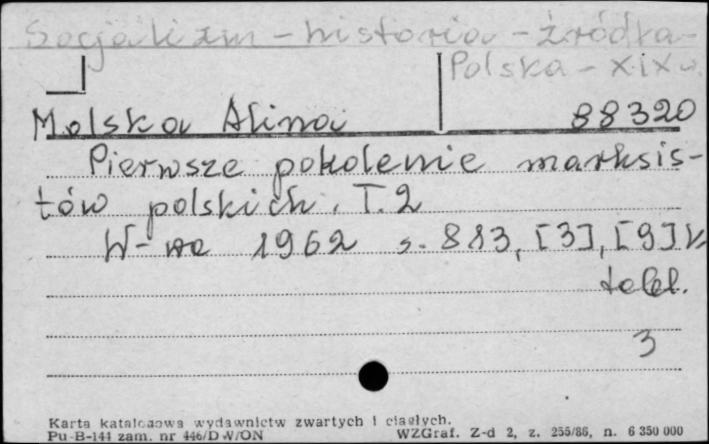 Socjalizm - historia - źródła -
Polska - XIX w.
Molska Alina 88320
Pierwsze pokolenie marksis-
tów polskich. T. 2
W-wa 1962 s. 883, [3], [9] k
tabl.
3
Karta katalogowa wydawnictw zwartych i ciągłych.
Pu-B-144 zam. nr 446/D W/ON WZGraf. Z-d 2, z. 255/86, n. 6 350 000